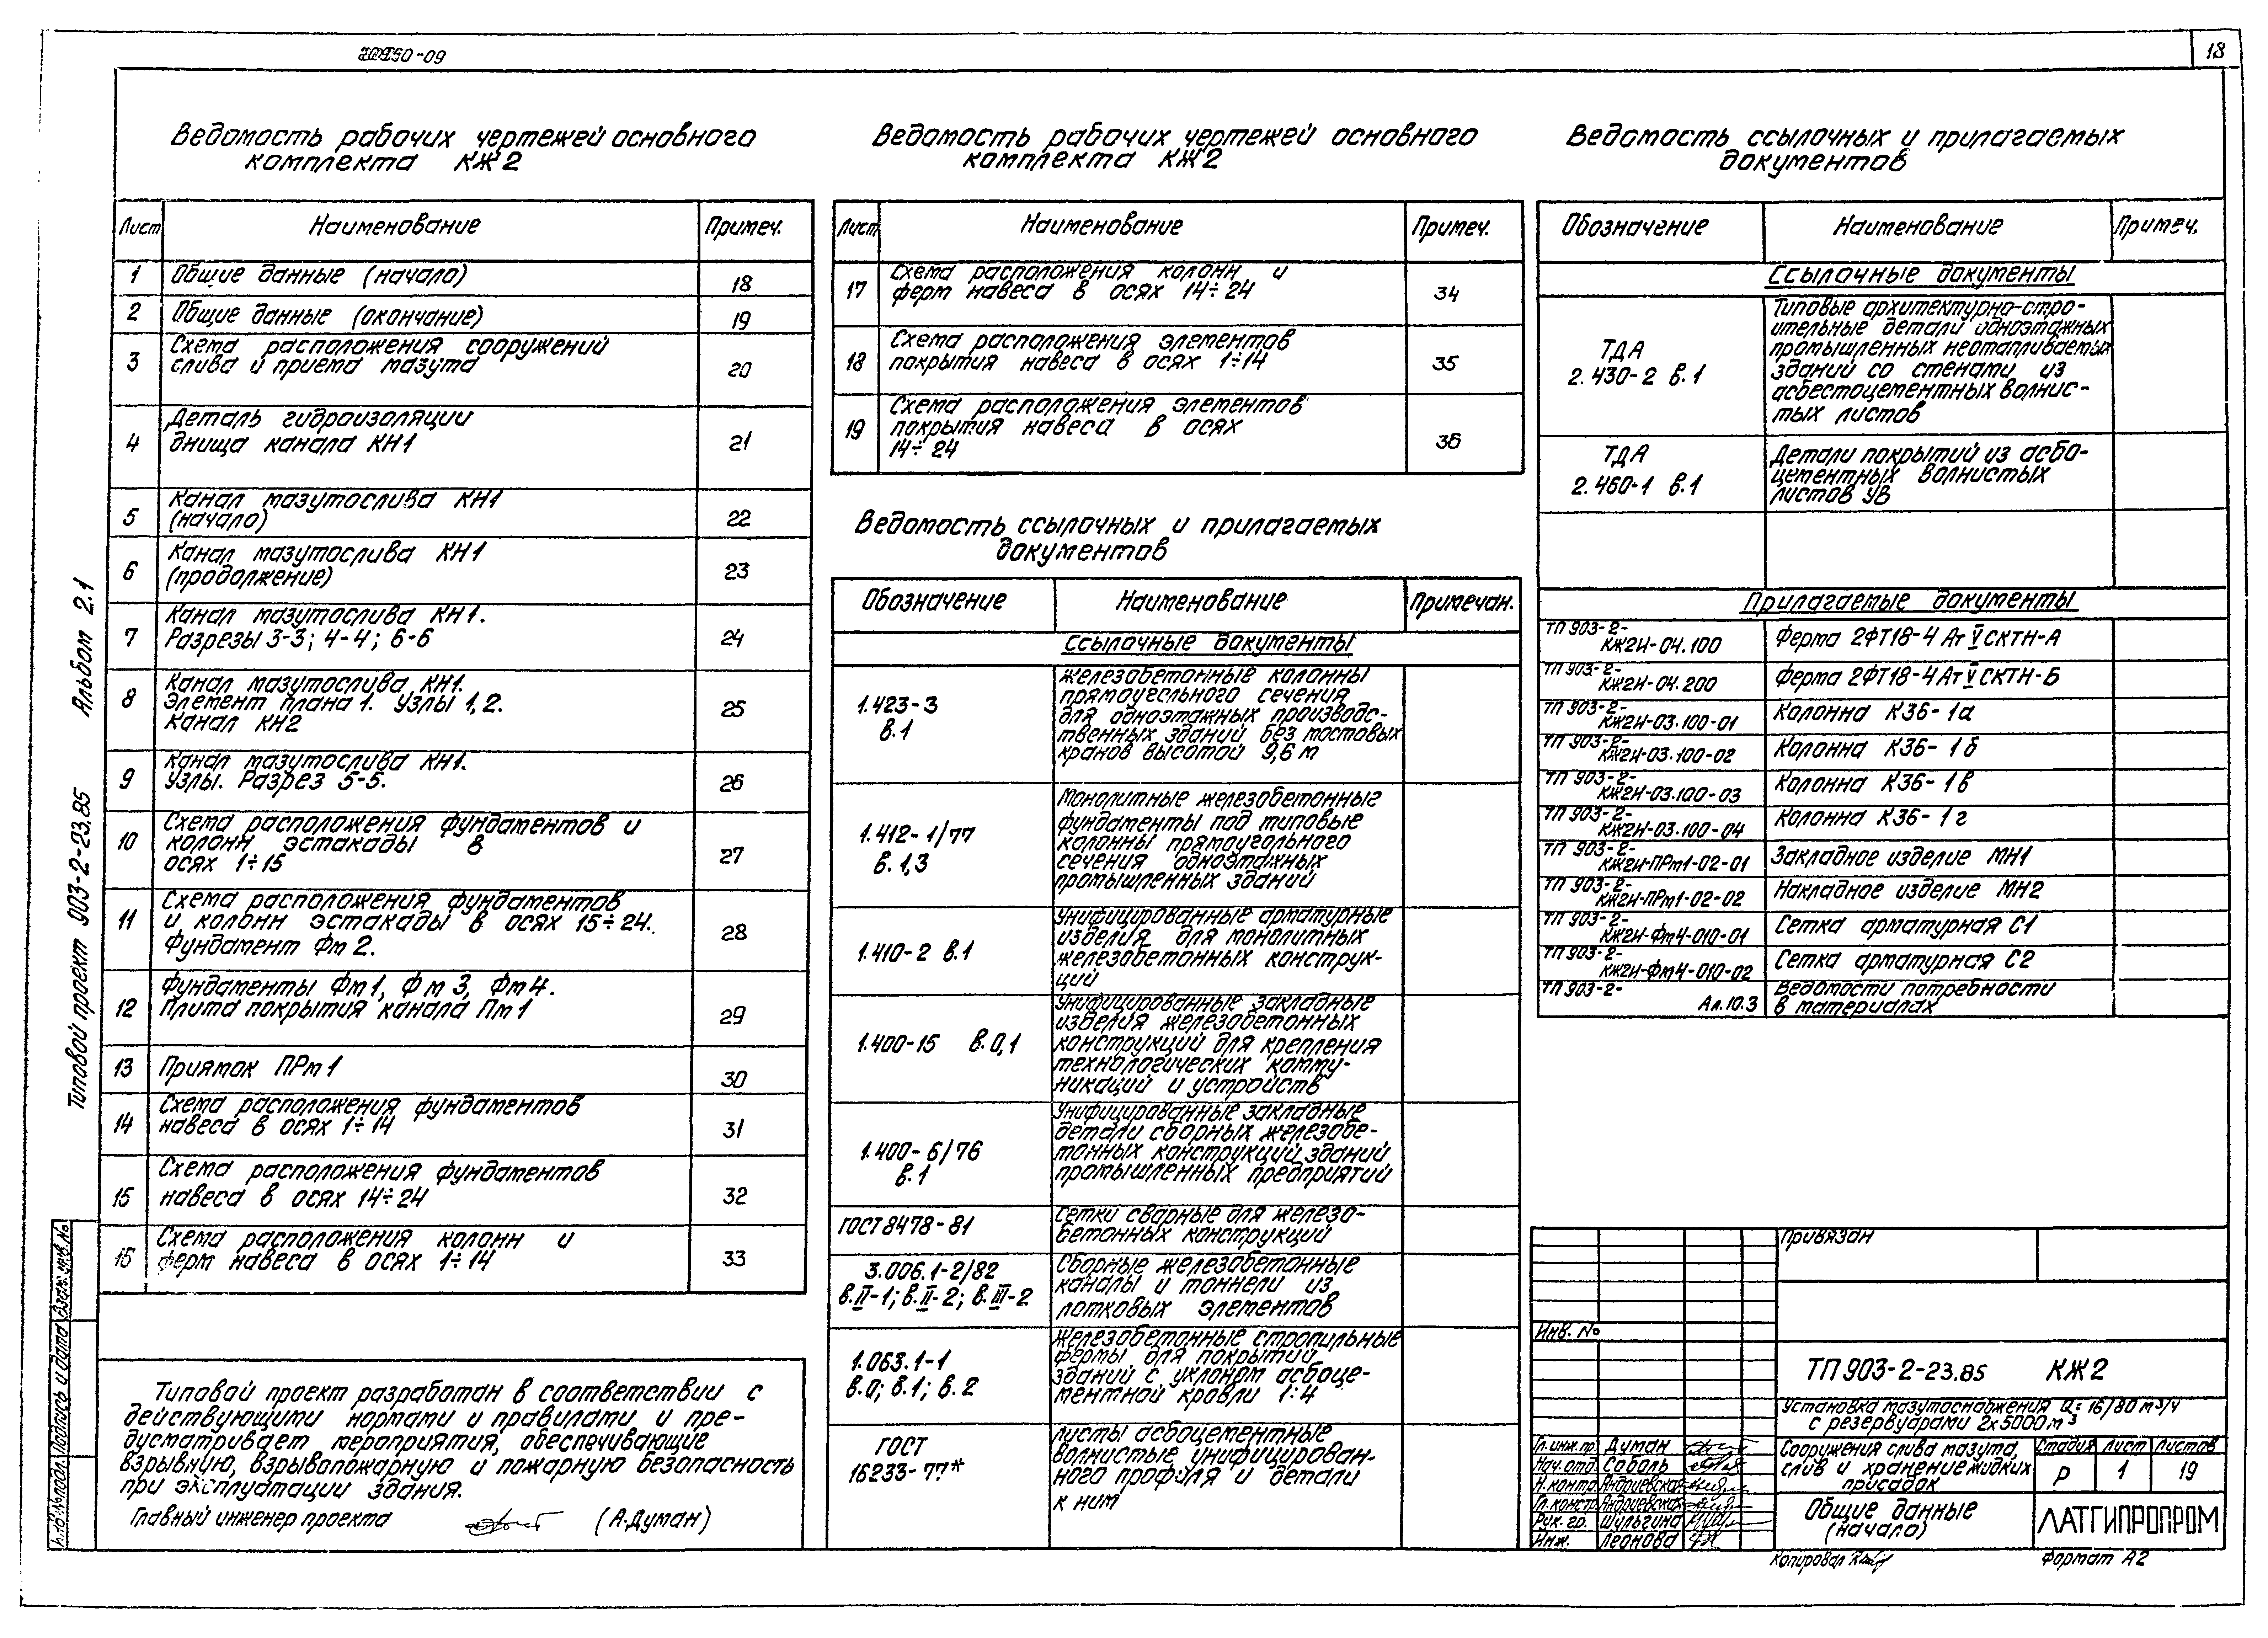 18
Ведомость рабочих чертежей основного
комплекта КЖ2
Лист Наименование Примеч.
1 Общие данные (начало) 18
2 Общие данные (окончание) 19
3 Схема расположения сооружений
слива и приема мазута 20
4 Деталь гидроизоляции
днища канала КН1 21
5 Канал мазутослива КН1
(начало) 22
6 Канал мазутослива КН1
(продолжение) 23
7 Канал мазутослива КН1.
Разрезы 3-3; 4-4; 6-6 24
8 Канал мазутослива КН1.
Элемент плана 1. Узлы 1,2.
Канал КН2 25
9 Канал мазутослива КН1.
Узлы. Разрез 5-5. 26
10 Схема расположения фундаментов и
колонн эстакады в
осях 1÷15 27
11 Схема расположения фундаментов
и колонн эстакады в осях 15÷24.
Фундамент Фм2. 28
12 Фундаменты Фм1, Фм3, Фм4.
Плита покрытия канала Пм1 29
13 Приямок ПРм1 30
14 Схема расположения фундаментов
навеса в осях 1÷14 31
15 Схема расположения фундаментов
навеса в осях 14÷24 32
16 Схема расположения колонн и
ферм навеса в осях 1÷14 33
Типовой проект разработан в соответствии с
действующими нормами и правилами и пре-
дусматривает мероприятия, обеспечивающие
взрывную, взрывопожарную и пожарную безопасность
при эксплуатации здания.
Главный инженер проекта (А.Думан)
Ведомость рабочих чертежей основного
комплекта КЖ2
Лист Наименование Примеч.
17 Схема расположения колонн и
ферм навеса в осях 14÷24 34
18 Схема расположения элементов
покрытия навеса в осях 1÷14 35
19 Схема расположения элементов
покрытия навеса в осях
14÷24 36
Ведомость ссылочных и прилагаемых
документов
Обозначение Наименование Примечан.
Ссылочные документы
1.423-3
в.1
Железобетонные колонны
прямоугольного сечения
для одноэтажных производс-
твенных зданий без мостовых
кранов высотой 9,6 м
1.412-1/77
в.1,3
Монолитные железобетонные
фундаменты под типовые
колонны прямоугольного
сечения одноэтажных
промышленных зданий
1.410-2 в.1
Унифицированные арматурные
изделия для монолитных
железобетонных конструк-
ций
1.400-15 в.0,1
Унифицированные закладные
изделия железобетонных
конструкций для крепления
технологических комму-
никаций и устройств
1.400-6/76
в.1
Унифицированные закладные
детали сборных железобе-
тонных конструкций зданий
промышленных предприятий
ГОСТ 8478-81
Сетки сварные для железо-
бетонных конструкций
3.006.1-2/82
в.II-1; в.II-2; в.III-2
Сборные железобетонные
каналы и тоннели из
лотковых элементов
1.063.1-1
в.0; в.1; в.2
Железобетонные стропильные
фермы для покрытий
зданий с уклоном асбоце-
ментной кровли 1:4
ГОСТ
16233-77*
Листы асбоцементные
волнистые унифицирован-
ного профиля и детали
к ним
Ведомость ссылочных и прилагаемых
документов
Обозначение Наименование Примеч.
Ссылочные документы
ТДА
2.430-2 в.1
Типовые архитектурно-стро-
ительные детали одноэтажных
промышленных неотапливаемых
зданий со стенами из
асбестоцементных волнис-
тых листов
ТДА
2.460-1 в.1
Детали покрытий из асбо-
цементных волнистых
листов УВ
Прилагаемые документы
ТП 903-2-
КЖ2И-04.100 Ферма 2ФТ18-4 Ат V СКТН-А
ТП 903-2-
КЖ2И-04.200 Ферма 2ФТ18-4 Ат V СКТН-Б
ТП 903-2-
КЖ2И-03.100-01 Колонна К36-1а
ТП 903-2-
КЖ2И-03.100-02 Колонна К36-1б
ТП 903-2-
КЖ2И-03.100-03 Колонна К36-1в
ТП 903-2-
КЖ2И-03.100-04 Колонна К36-1г
ТП 903-2-
КЖ2И-ПРм1-02-01 Закладное изделие МН1
ТП 903-2-
КЖ2И-ПРм1-02-02 Накладное изделие МН2
ТП 903-2-
КЖ2И-Фм4-010-01 Сетка арматурная С1
ТП 903-2-
КЖ2И-Фм4-010-02 Сетка арматурная С2
ТП 903-2-
Ал.10.3 Ведомости потребности
в материалах
Привязан
Инв. №
ТП 903-2-23.85 КЖ2
Установка мазутоснабжения Q=16/80 м³/ч
с резервуарами 2х5000м³
Гл. инж. пр. Думан
Нач. отд. Соболь
Н. контр. Андриевская
Гл. констр. Андриевская
Рук. гр. Шульгина
Инж. Леонова
Сооружения слива мазута,
слив и хранение жидких
присадок
Стадия Лист Листов
Р 1 19
Общие данные
(начало)
ЛАТГИПРОПРОМ
Копировал
Формат А2
Типовой проект 903-2-23.85 Альбом 2.1
Инв.№ подл. Подпись и дата Взам. инв. №